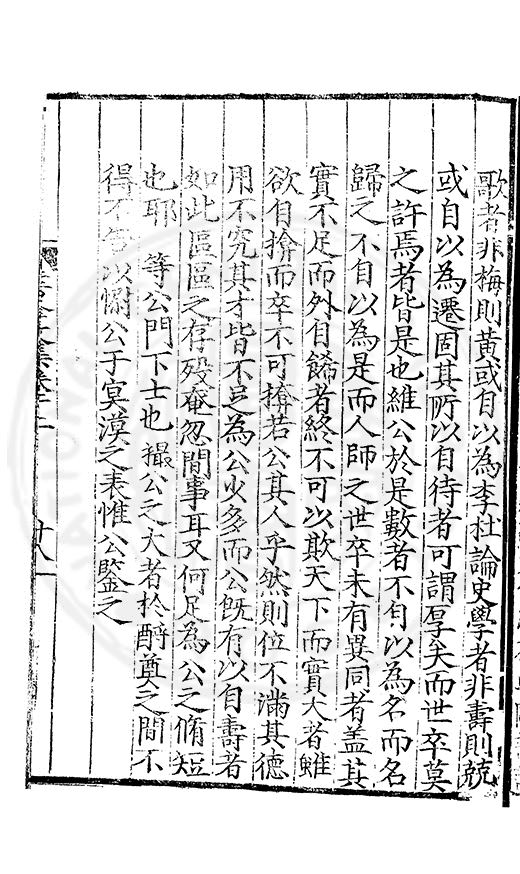 歌者非梅則黄或自以為李杜論史學者非壽則兢
或自以為遷固其所以自待者可謂厚矣而世卒莫
之許焉者皆是也維公於是數者不自以為名而名
歸之不自以為是而人師之世卒未有異同者盖其
實不足而外自餙者終不可以欺天下而實大者雖
欲自揜而卒不可揜若公其人乎然則位不滿其德
用不究其才皆不足為公少多而公旣有以自壽者
如此區區之存殁奄忽間事耳又何足為公之脩短
也耶 等公門下士也撮公之大者於酹奠之間不
得不告以慰公于冥漠之表惟公鑒之